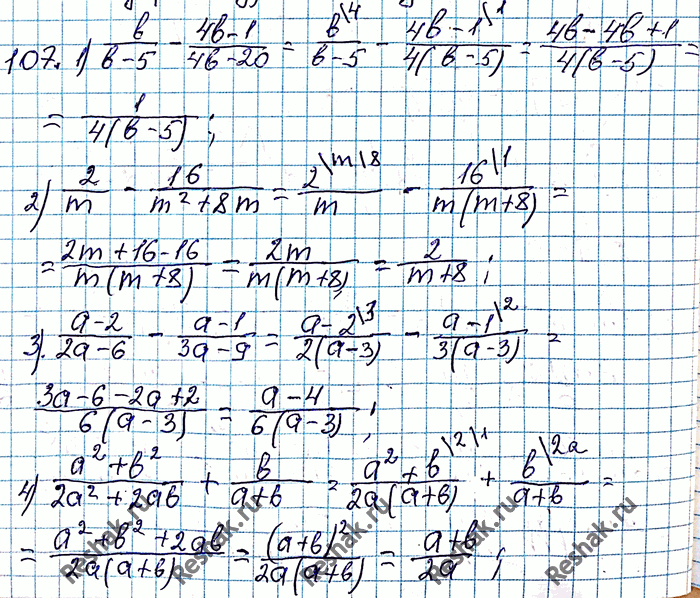 107. 1) в/(в-5) - (4в-1)/(4в-20) = в\4/(в-5) - (4в-1\1)/(4(в-5)) = (4в-4в+1)/(4(в-5)) =
= 1/(4(в-5));
2) 2/m - 16/(m²+8m) = 2\m\8/m - 16\1/(m(m+8)) =
= (2m+16-16)/(m(m+8)) = 2m/(m(m+8)) = 2/(m+8);
3). (a-2)/(2a-6) - (a-1)/(3a-9) = (a-2\3)/(2(a-3)) - (a-1\2)/(3(a-3)) =
(3a-6-2a+2)/(6(a-3)) = (a-4)/(6(a-3));
4) (a²+в²)/(2a²+2aв) + в/(a+в) = (a²+в\2\1)/(2a(a+в)) + в\2a/(a+в) =
= (a²+в²+2aв)/(2a(a+в)) = (a+в)²/(2a(a+в)) = (a+в)/2a;
Reshak.ru Reshak.ru Reshak.ru Reshak.ru Reshak.ru